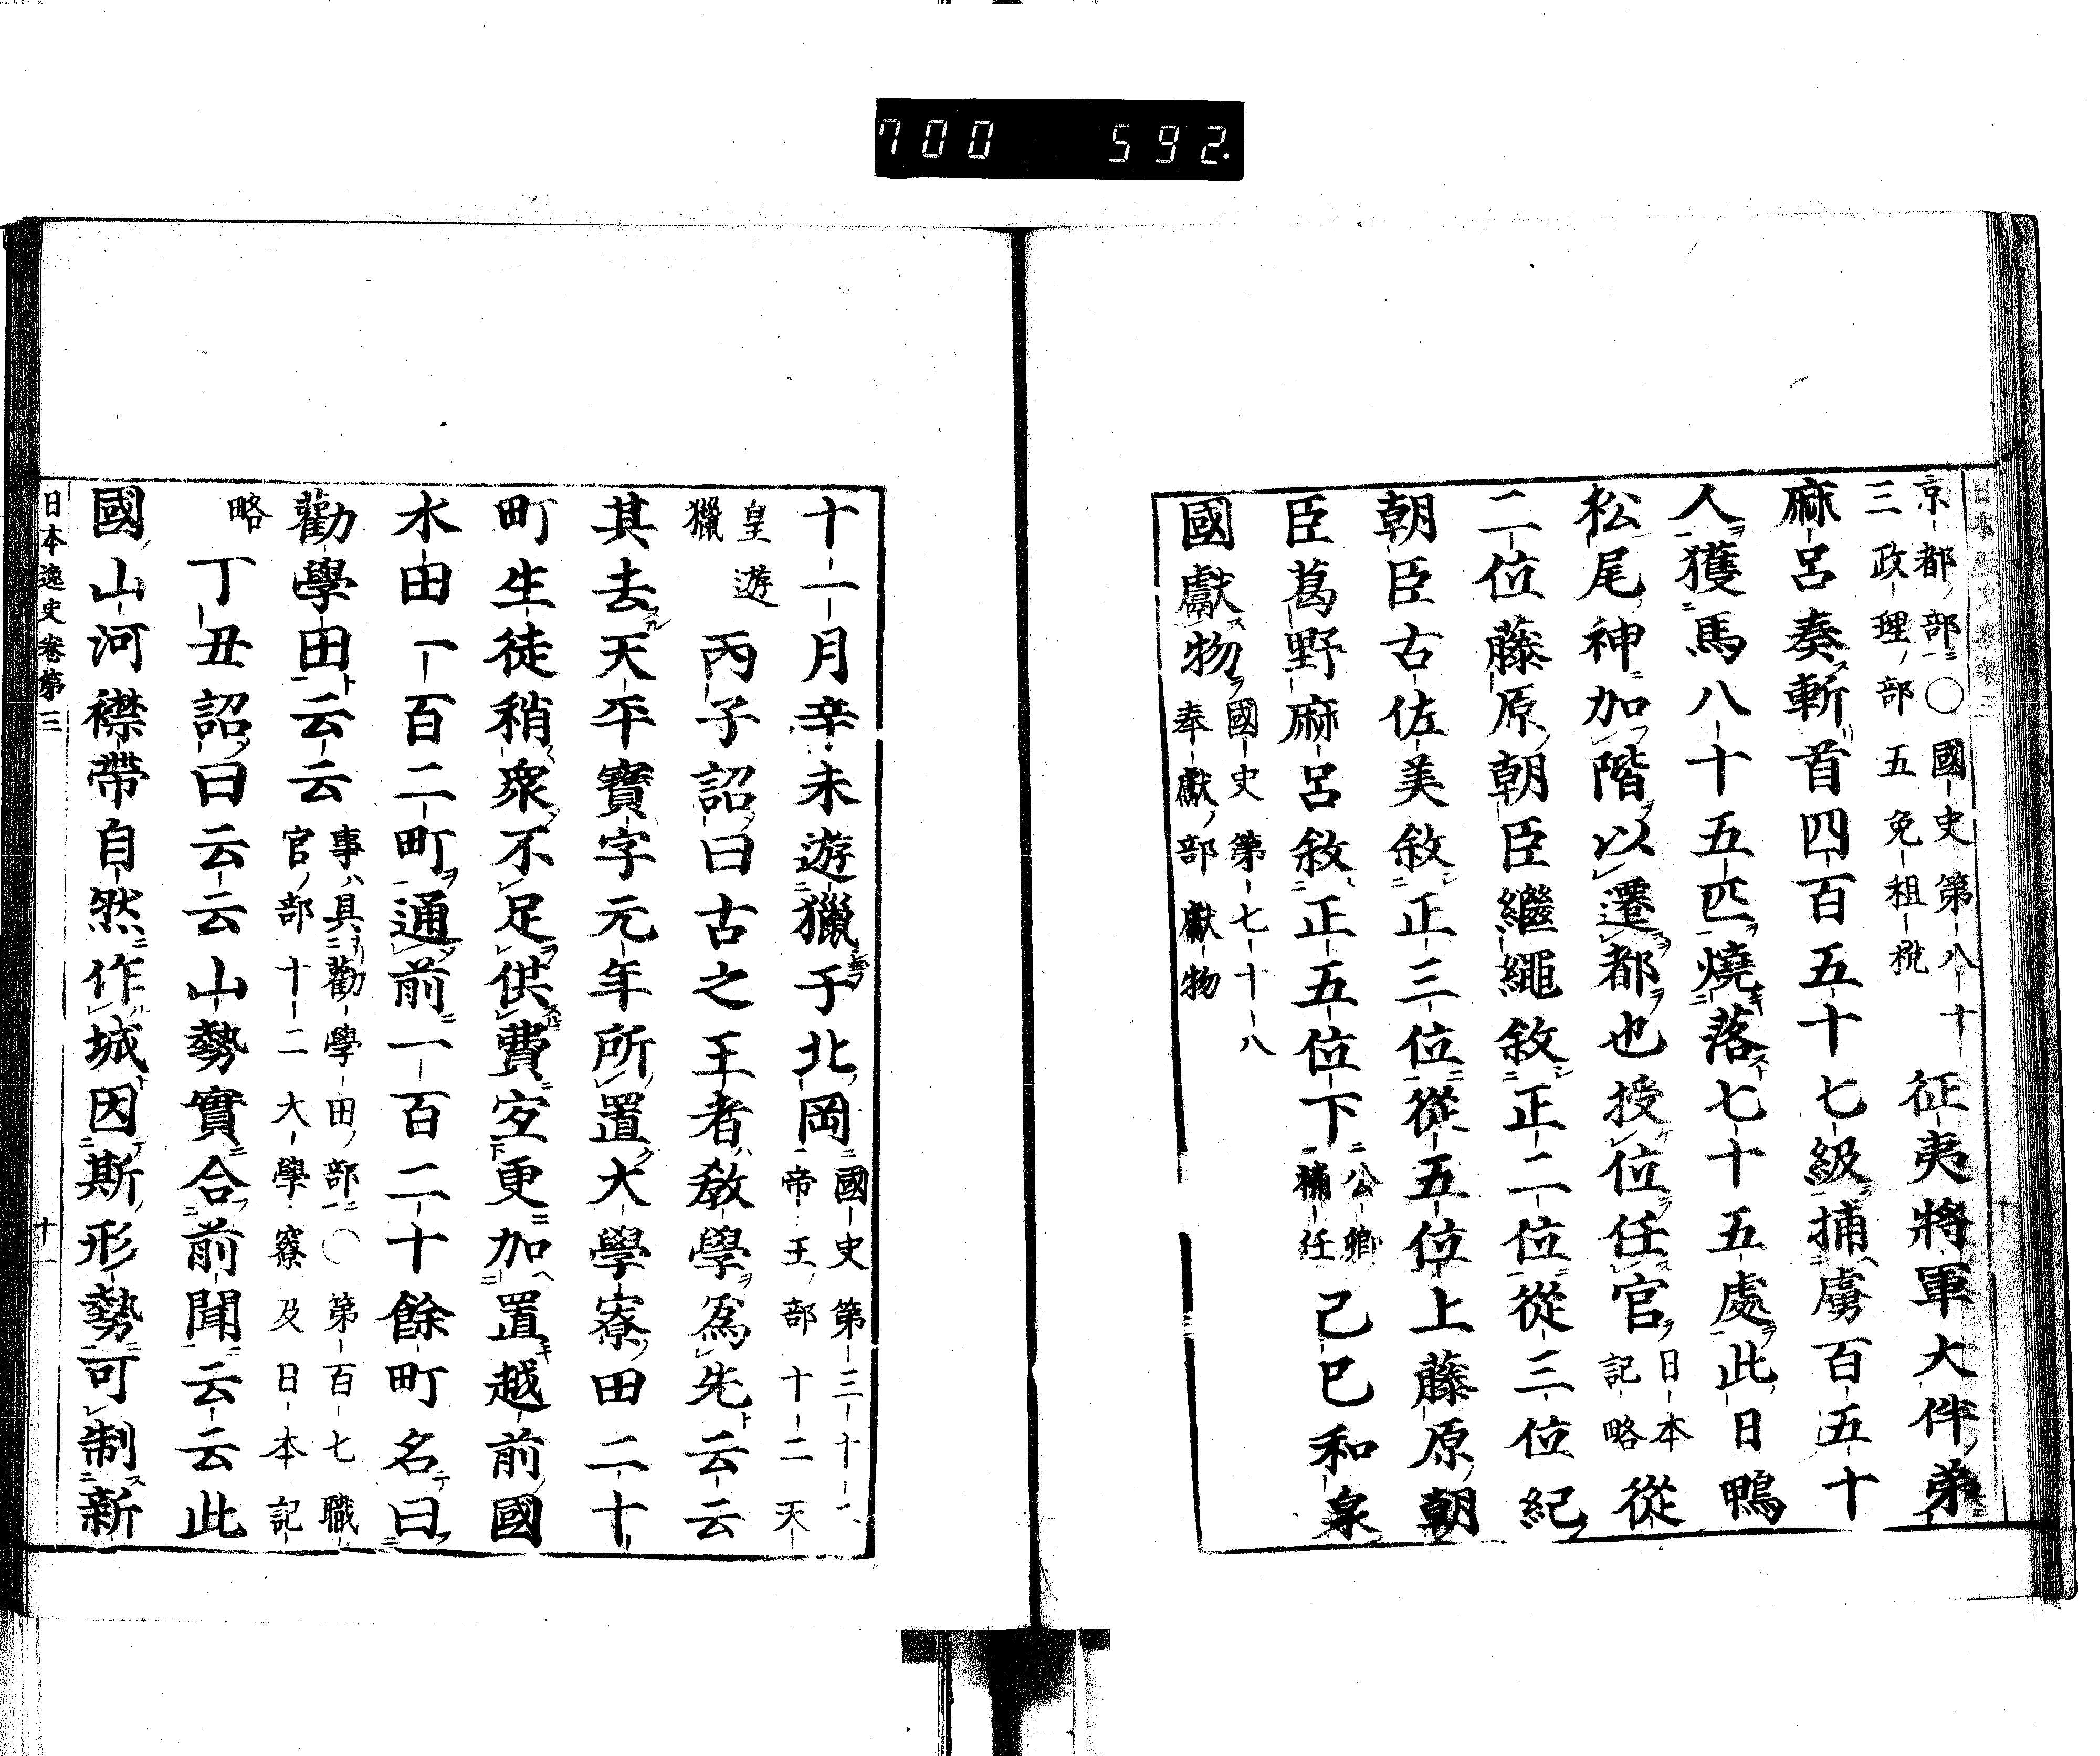 700 592.
京都部〇國史第八十
三政理部五免租税
征夷將軍大伴弟
麻呂奏斬首四百五十七級捕虜百五十
人獲馬八十五匹燒落七十五處此日鴨
松尾神加階以遷都也授位任官
日本
記略
從
二位藤原朝臣繼繩敘正二位從三位紀
朝臣古佐美敘正三位從五位上藤原朝
臣葛野麻呂敘正五位下
公卿
補任
己巳和泉
國獻物
國史第七十八
奉獻部獻物
十一月辛未遊獵于北岡
國史第三十二
帝王部十二天
皇遊
獵
丙子詔曰古之王者敎學爲先云云
其去天平寶字元年所置大學寮田二十
町生徒稍衆不足供費宜更加置越前國
水田一百二町通前一百二十餘町名曰
勸學田云云
事具勸學田部〇第百七職
官部十二大學寮及日本記
略
丁丑詔曰云云山勢實合前聞云云此
國山河襟帶自然作城因斯形勢可制新
日本逸史卷第三
十一